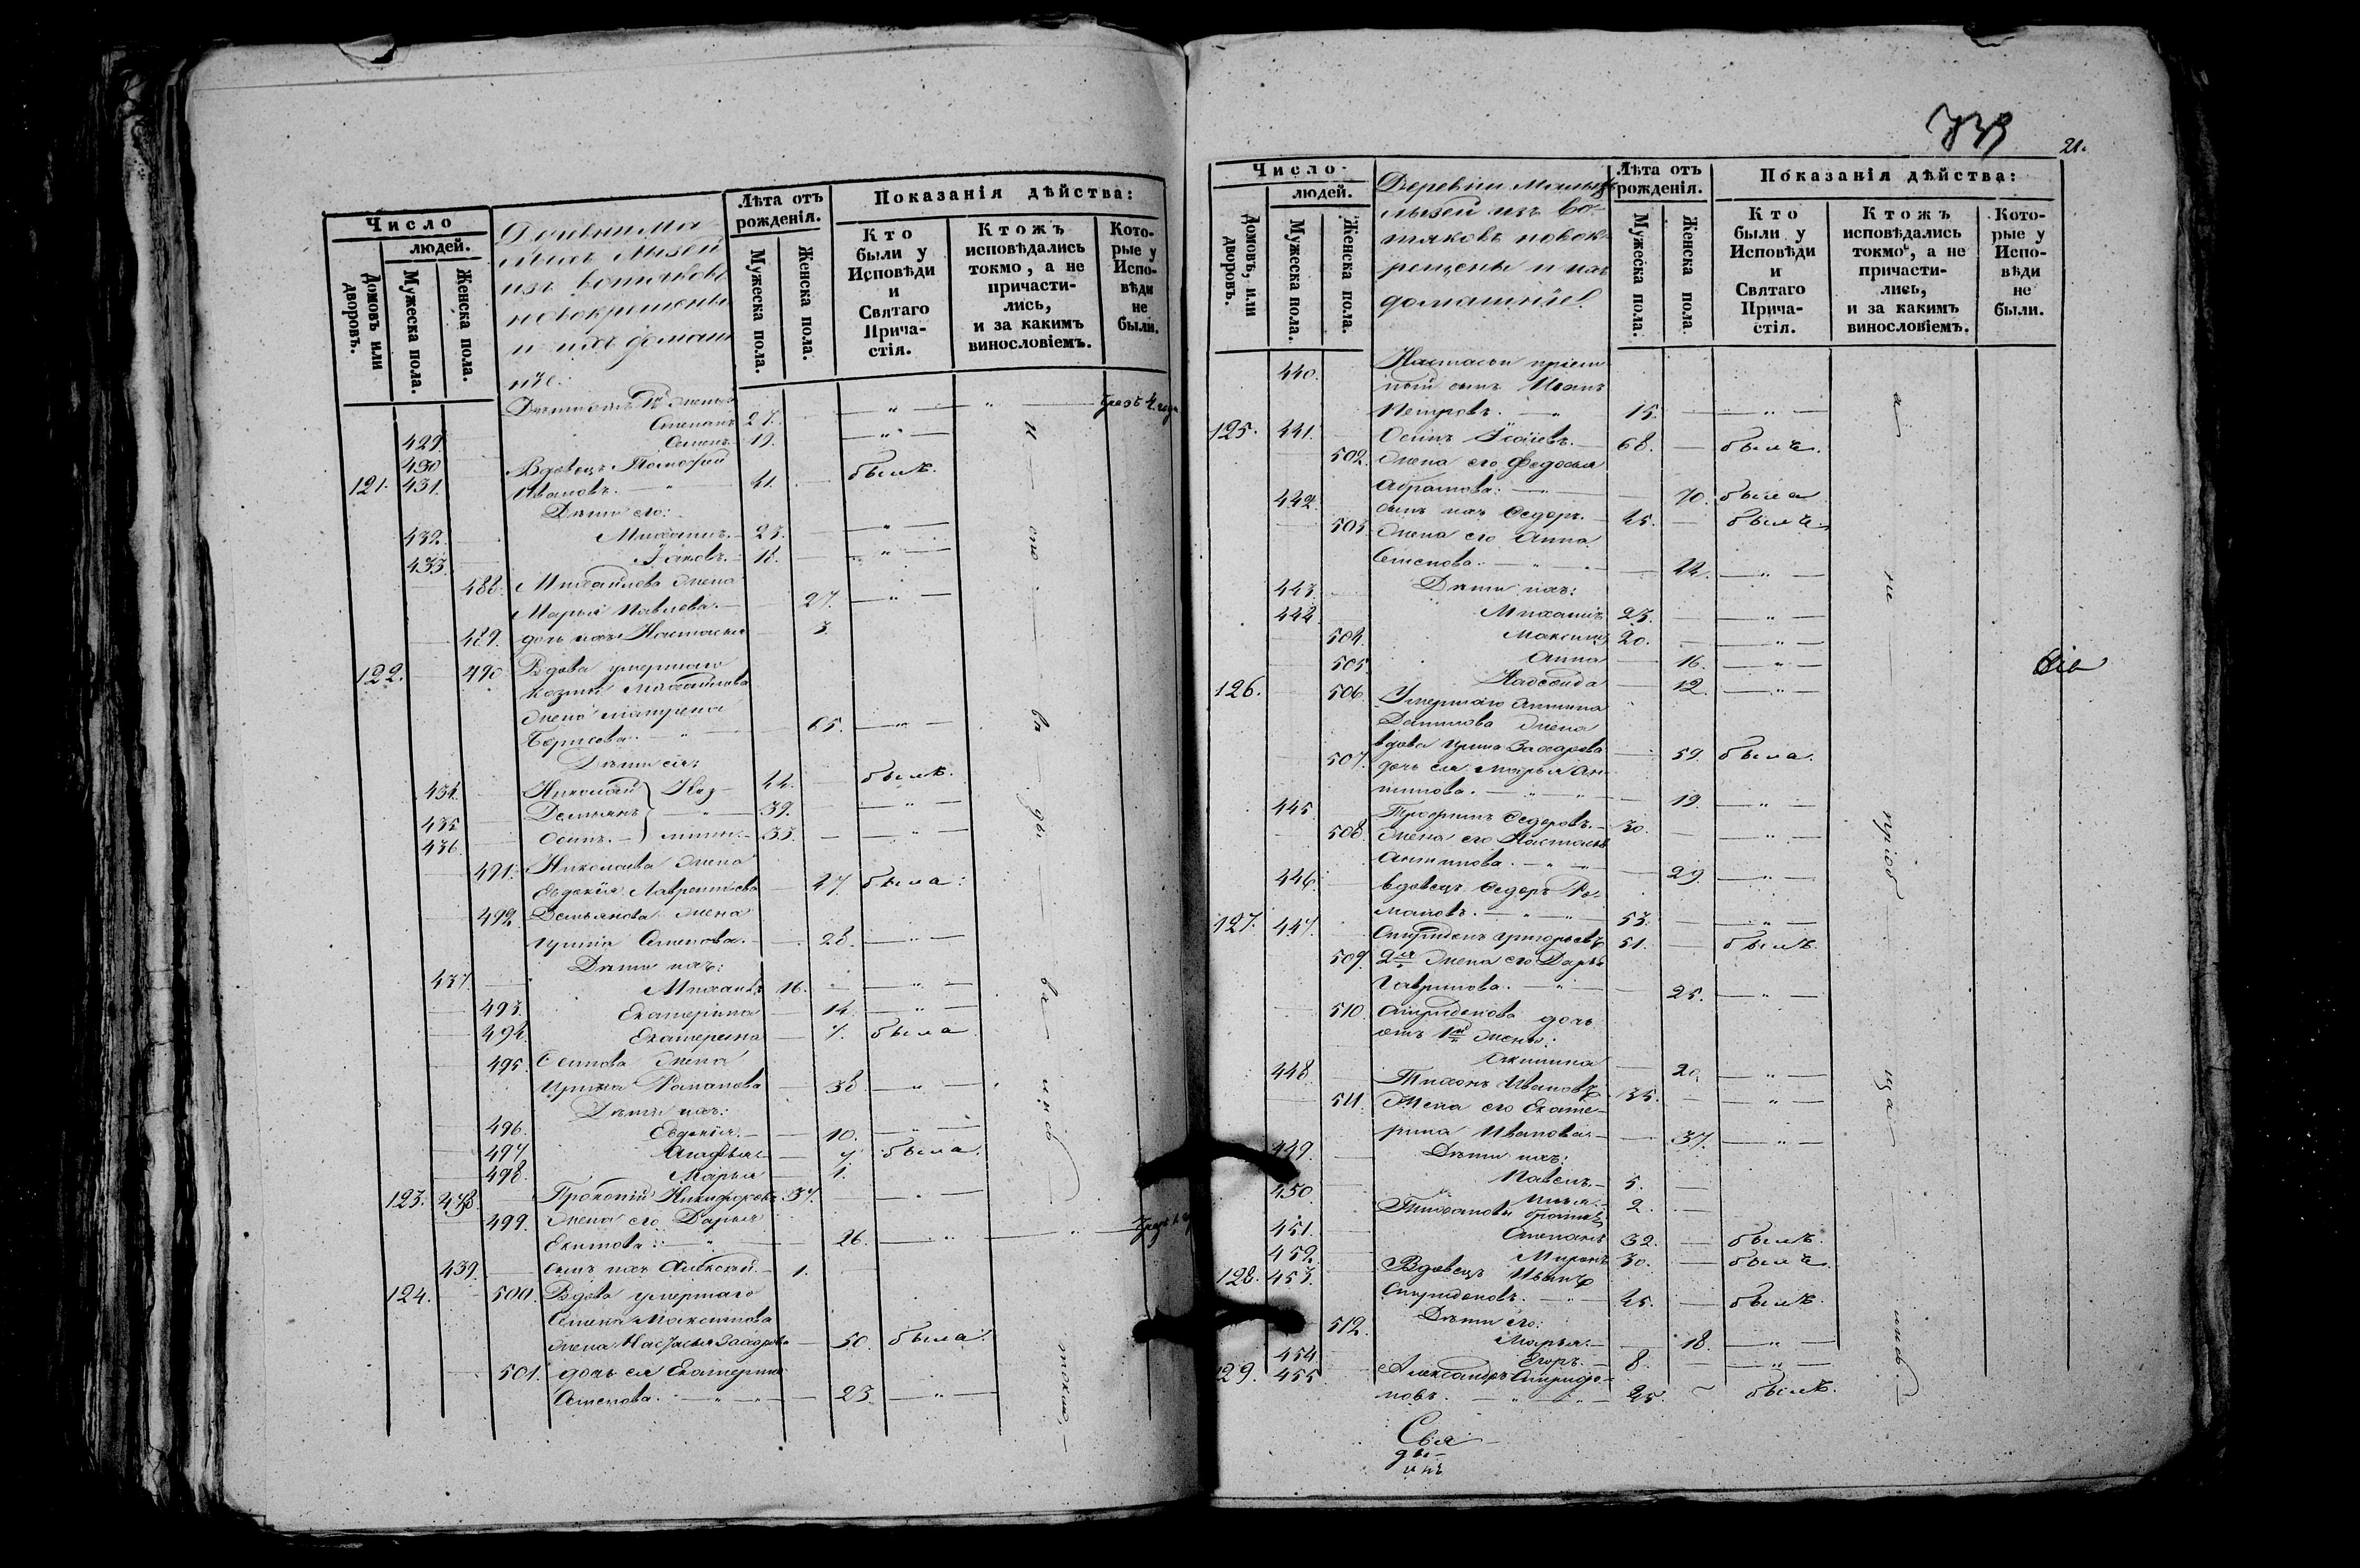 Число
людей.
Домовъ или дворовъ.
Мужеска пола.
Женска пола.
Деревни Ма-
лыхъ Лызей
изъ вотяковъ
новокрещены
и ихъ домаш
ніе:
Лѣта отъ рожденія.
Мужеска пола.
Женска пола.
Показанія дѣйства:
Кто были у Исповѣди и Святаго Прича-стія.
Ктожъ исповѣдались токмо, а не причасти-лись, и за какимъ винословіемъ.
Кото-рые у Испо-вѣди не были.
429. Степанъ 27. — " —
430 Семенъ 19. — " —
121. 431. Вдовецъ Тимофей
Ивановъ. — " 41. былъ.
Дѣти его:
432. Михаилъ. 23. — " —
433. Іаковъ. 18. — " —
488. Михайлова жена
Марья Павлова. 27. — " —
489. дочь ихъ Настасья 3.
122. 490 Вдова умершаго
Козмы Михайлова
жена Матрена
Борисова. — " 65. — " —
Дѣти ея:
434. Николай 44. былъ.
435 Демьянъ — " 39. — " —
436. Осипъ. 33. — " —
491. Николаева жена
Евдокія Лаврентьева 47. была.
492. Демьянова жена
Ирина Семенова. 28. — " —
Дѣти ихъ:
437. Михаилъ 16. — " —
493. Екатерина 14. — " —
494. Екатерина 7. была
495. Осипова жена
Ирина Романова 38. — " —
Дѣти ихъ:
496. Евдокія. 10. — " —
497 Агафья 7 была.
498. Марья 1.
123. 438. Прокопій Никифоровъ 37. — " —
499. Жена его Дарья
Екимова: 26. — " —
439. Сынъ ихъ Алексѣй. 1.
124. 500. Вдова умершаго
Семена Максимова
жена Настасья Захарова 50. была.
501. дочь ея Екатерина
Семенова. — " — " — 23. — " —
21.
Число
людей.
Домовъ, или дворовъ.
Мужеска пола.
Женска пола.
Деревни Малыхъ
Лызей изъ во-
тяковъ новок-
рещены и ихъ
домашніе.
Лѣта отъ рожденія.
Мужеска пола.
Женска пола.
Показанія дѣйства:
Кто были у Исповѣди и Святаго Прича-стія.
Ктожъ исповѣдались токмо, а не причасти-лись, и за какимъ винословіемъ.
Кото-рые у Испо-вѣди не были.
440. Настасьи пріем
ный сынъ Иванъ
Петровъ. — " 15. — " —
125. 441. Осипъ Ісаіевъ. 68. былъ.
502. Жена его Федосья
Абрамова: 70. была
442. сынъ ихъ Федоръ. 45. былъ
503. Жена его Анна
Семенова. 44. — " —
Дѣти ихъ:
443. Михаилъ 23. — " —
444. Максимъ 20. — " —
504. Анна 16. — " —
505. 12. — " —
126. 506. Умершаго Антипа
Данилова жена
вдова Ирина Захарова 59. была.
507. дочь ея Марья Ан-
типова. — " — " 19. — " —
445 Трофимъ Федоровъ. 30. — " —
508. Жена его Настасья
Антипова. 29. — " —
446. вдовецъ Федоръ Ро-
мановъ. — " — " 53. — " —
127. 447. Спиридонъ Григорьевъ 51. былъ
509. 2я жена его Дарья
Гаврилова. — " 25. — " —
510. Спиридонова дочь
отъ 1й жены:
Акилина 20. — " —
448. Тихонъ Ивановъ 35. — " —
511. Жена его Екате-
рина Иванова 37. — " —
Дѣти ихъ:
449. Павелъ. 5.
450. Илья. 2.
Тихоновы братья
451. Степанъ 32. былъ.
452. Миронъ 30. былъ.
128. 453. Вдовецъ Иванъ
Спиридоновъ. 45. былъ.
Дѣти его:
512. Марья. 18. — " —
454. Егоръ. 8. — " —
129. 455 Александръ Спиридо-
новъ. 45. былъ.